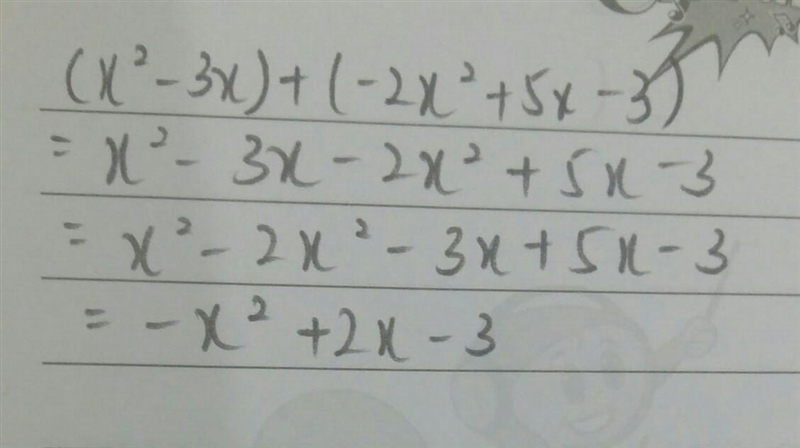 (x² - 3x) + (-2x² + 5x - 3)
= x² - 3x - 2x² + 5x - 3
= x² - 2x² - 3x + 5x - 3
= -x² + 2x - 3